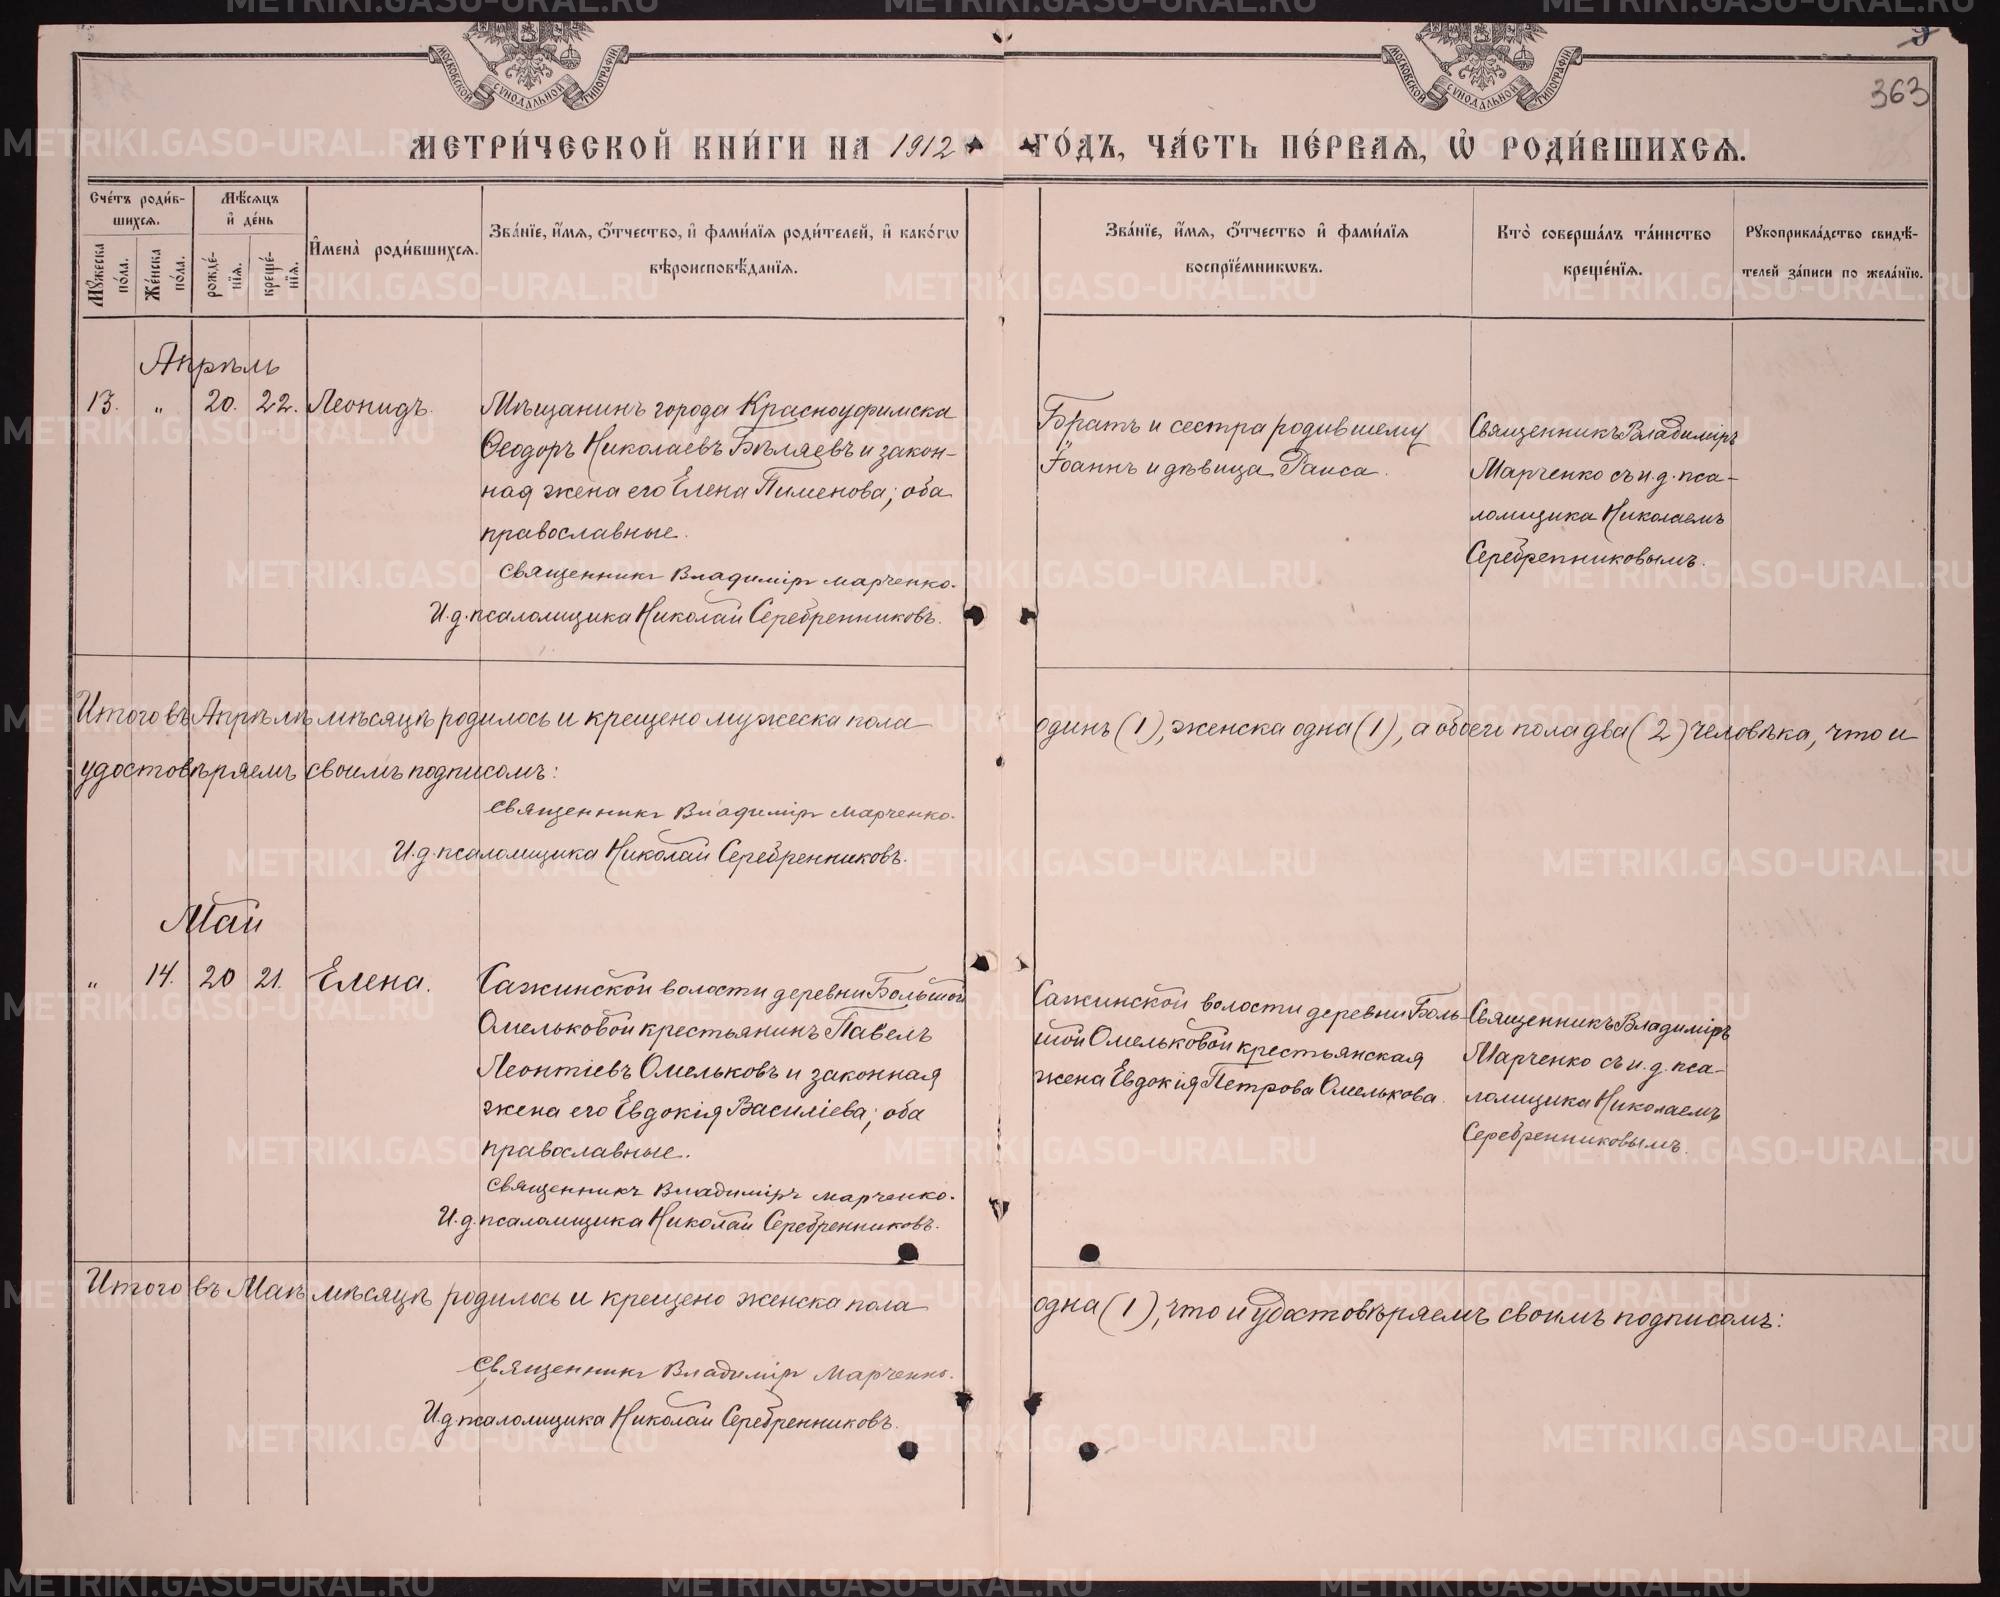 МОСКОВСКОЙ СѴНОДАЛЬНОЙ ТИПОГРАФІИ
МОСКОВСКОЙ СѴНОДАЛЬНОЙ ТИПОГРАФІИ
363
МЕТРИ́ЧЕСКОЙ КНИ́ГИ НА 1912 ГО́ДЪ, ЧА́СТЬ ПЕ́РВАЯ, Ѡ҆ РОДИ́ВШИХСЯ.
Сче́тъ роди́вшихся.
Мужеска по́ла.
Же́нска по́ла.
Мѣ́сяцъ и҆ де́нь
рожде́нїя.
креще́нїя.
И҆мена̀ роди́вшихся.
Зва́нїе, и҆́мя, ѻ҆́тчество, и҆ фами́лїя роди́телей, и҆ како́гѡ
вѣроисповѣ́данїя.
Зва́нїе, и҆́мя, ѻ҆́тчество и҆ фами́лїя
воспрїе́мникѡвъ.
Кто̀ соверша́лъ та́инство
креще́нїя.
Рꙋкоприкла́дство свидѣ́-
телей за́писи по жела́нїю.
Апрѣль
13. „ 20. 22. Леонидъ.
Мѣщанинъ города Красноуфимска
Ѳеодоръ Николаевъ Бѣляевъ и закон-
ная жена его Елена Пименова; оба
православные.
Священникъ Владимiръ Марченко.
И.д.псаломщика Николай Серебренниковъ.
Братъ и сестра родившему
Іоаннъ и дѣвица Раиса.
Священникъ Владимiръ
Марченко съ и.д.пса-
ломщика Николаемъ
Серебренниковымъ.
Итого въ Апрѣлѣ мѣсяцѣ родилось и крещено мужеска пола одинъ (1), женска одна (1), а обоего пола два (2) человѣка, что и
удостовѣряемъ своимъ подписомъ:
Священникъ Владимiръ Марченко.
И.д.псаломщика Николай Серебренниковъ.
Май
„ 14. 20 21. Елена.
Сажинской волости деревни Большой
Омельковой крестьянинъ Павелъ
Леонтiевъ Омельковъ и законная
жена его Евдокiя Василiева; оба
православные.
Священникъ Владимiръ Марченко.
И.д.псаломщика Николай Серебренниковъ.
Сажинской волости деревни Боль-
шой Омельковой крестьянская
жена Евдокiя Петрова Омелькова.
Священникъ Владимiръ
Марченко съ и.д.пса-
ломщика Николаемъ
Серебренниковымъ.
Итого въ Маѣ мѣсяцѣ родилось и крещено женска пола одна (1), что и удостовѣряемъ своимъ подписомъ:
Священникъ Владимiръ Марченко.
И.д.псаломщика Николай Серебренниковъ.
METRIKI.GASO-URAL.RU